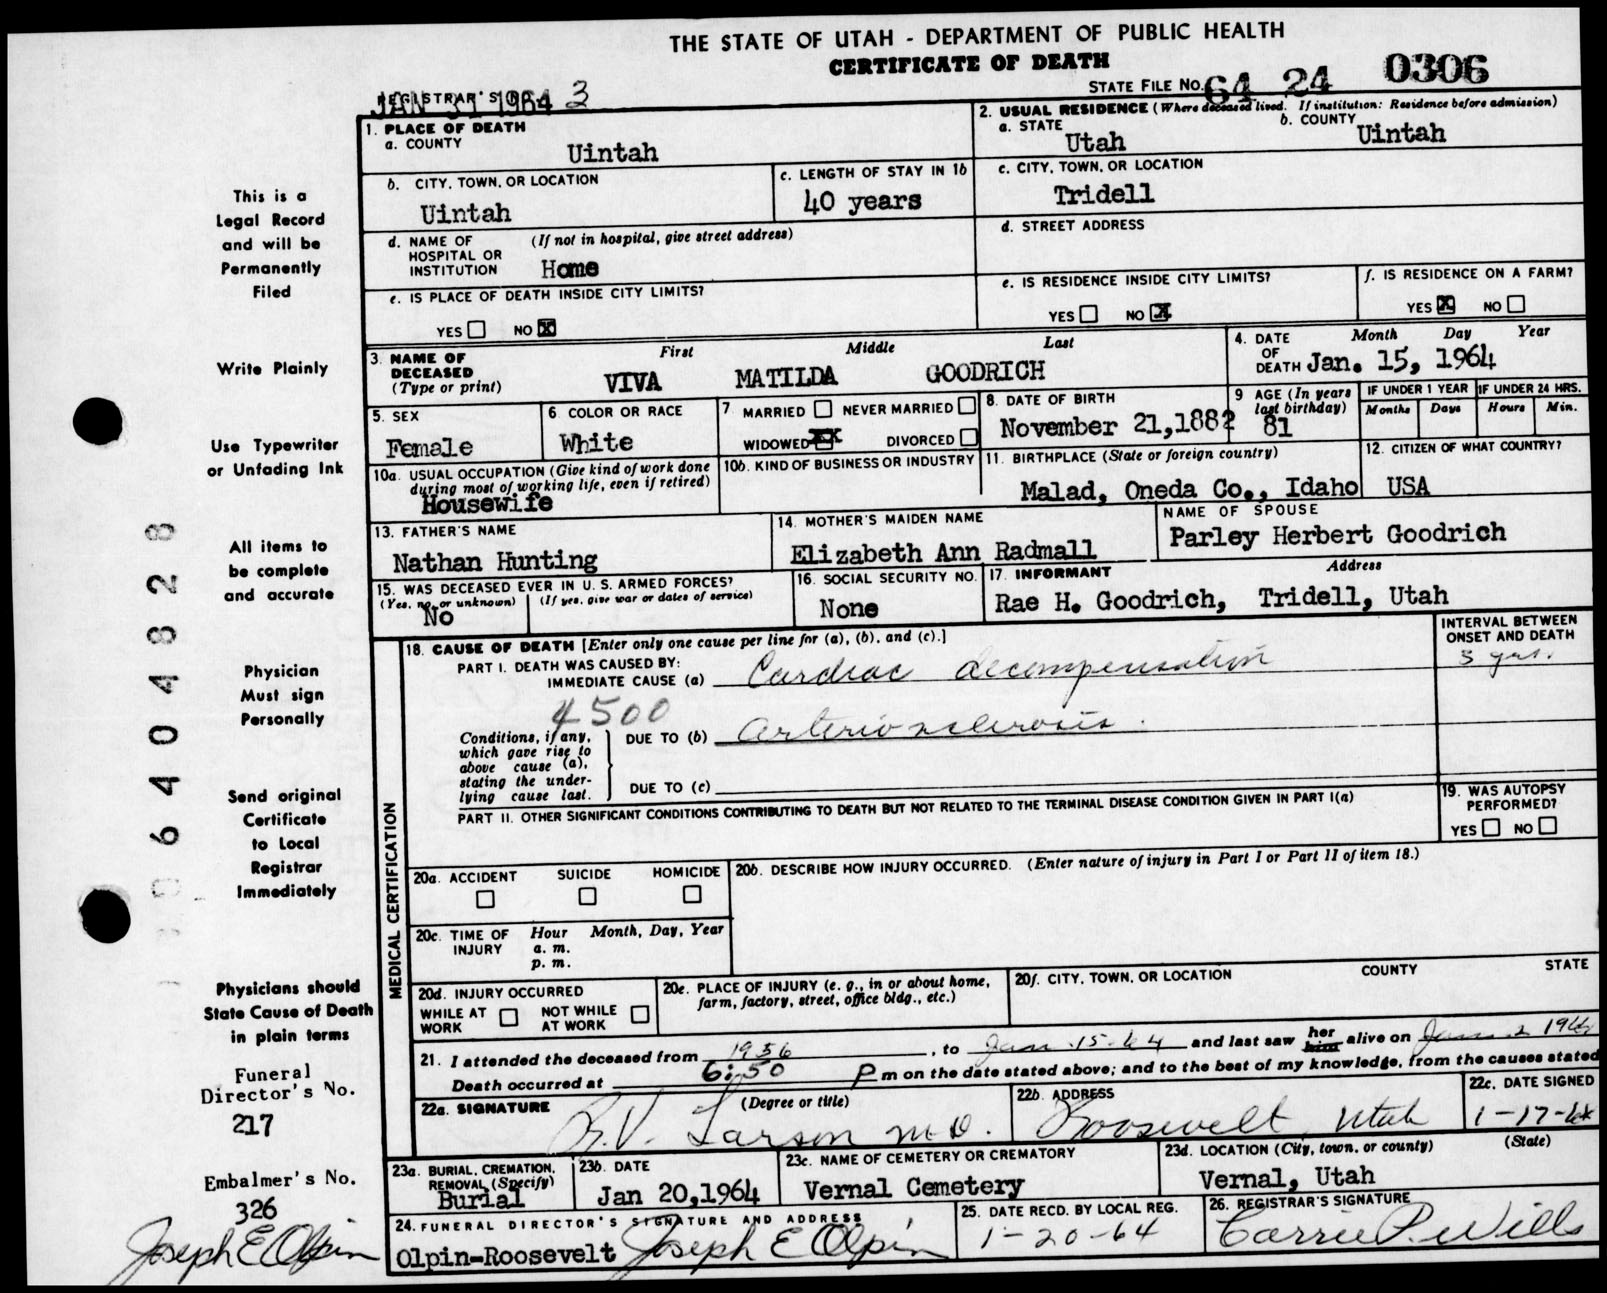 THE STATE OF UTAH - DEPARTMENT OF PUBLIC HEALTH
CERTIFICATE OF DEATH
STATE FILE NO. 64 24 0306
REGISTRAR'S NO. 3
JAN 31 1964
1. PLACE OF DEATH
a. COUNTY
Uintah
2. USUAL RESIDENCE (Where deceased lived. If institution: Residence before admission)
a. STATE
Utah
b. COUNTY
Uintah
b. CITY, TOWN, OR LOCATION
Uintah
c. LENGTH OF STAY IN 1b
40 years
c. CITY, TOWN, OR LOCATION
Tridell
d. NAME OF HOSPITAL OR INSTITUTION (If not in hospital, give street address)
Home
d. STREET ADDRESS
e. IS PLACE OF DEATH INSIDE CITY LIMITS?
YES NO X
e. IS RESIDENCE INSIDE CITY LIMITS?
YES NO X
f. IS RESIDENCE ON A FARM?
YES X NO
3. NAME OF DECEASED (Type or print)
First Middle Last
VIVA MATILDA GOODRICH
4. DATE OF DEATH
Month Day Year
Jan. 15, 1964
5. SEX
Female
6 COLOR OR RACE
White
7 MARRIED NEVER MARRIED
WIDOWED XX DIVORCED
8. DATE OF BIRTH
November 21,1882
9 AGE (In years last birthday)
81
IF UNDER 1 YEAR
Months Days
IF UNDER 24 HRS.
Hours Min.
10a. USUAL OCCUPATION (Give kind of work done during most of working life, even if retired)
Housewife
10b. KIND OF BUSINESS OR INDUSTRY
11. BIRTHPLACE (State or foreign country)
Malad, Oneda Co., Idaho
12. CITIZEN OF WHAT COUNTRY?
USA
13. FATHER'S NAME
Nathan Hunting
14. MOTHER'S MAIDEN NAME
Elizabeth Ann Radmall
NAME OF SPOUSE
Parley Herbert Goodrich
15. WAS DECEASED EVER IN U. S. ARMED FORCES?
(Yes, no, or unknown) (If yes, give war or dates of service)
No
16. SOCIAL SECURITY NO.
None
17. INFORMANT Address
Rae H. Goodrich, Tridell, Utah
MEDICAL CERTIFICATION
18. CAUSE OF DEATH [Enter only one cause per line for (a), (b), and (c).]
INTERVAL BETWEEN ONSET AND DEATH
PART I. DEATH WAS CAUSED BY:
IMMEDIATE CAUSE (a) Cardiac decompensation
3 yrs.
4500
Conditions, if any, which gave rise to above cause (a), stating the underlying cause last.
DUE TO (b) arteriosclerosis.
DUE TO (c)
PART II. OTHER SIGNIFICANT CONDITIONS CONTRIBUTING TO DEATH BUT NOT RELATED TO THE TERMINAL DISEASE CONDITION GIVEN IN PART I(a)
19. WAS AUTOPSY PERFORMED?
YES NO
20a. ACCIDENT SUICIDE HOMICIDE
20b. DESCRIBE HOW INJURY OCCURRED. (Enter nature of injury in Part I or Part II of item 18.)
20c. TIME OF INJURY
Hour Month, Day, Year
a. m.
p. m.
20d. INJURY OCCURRED
WHILE AT WORK NOT WHILE AT WORK
20e. PLACE OF INJURY (e. g., in or about home, farm, factory, street, office bldg., etc.)
20f. CITY, TOWN, OR LOCATION COUNTY STATE
21. I attended the deceased from 1956, to Jan-15-64 and last saw her him alive on Jan 2 1964
Death occurred at 6:50 P m on the date stated above; and to the best of my knowledge, from the causes stated
22a. SIGNATURE (Degree or title)
R.V. Larson M.D.
22b. ADDRESS
Roosevelt, Utah
22c. DATE SIGNED
1-17-64
23a. BURIAL, CREMATION, REMOVAL (Specify)
Burial
23b. DATE
Jan 20,1964
23c. NAME OF CEMETERY OR CREMATORY
Vernal Cemetery
23d. LOCATION (City, town, or county) (State)
Vernal, Utah
24. FUNERAL DIRECTOR'S SIGNATURE AND ADDRESS
Olpin-Roosevelt Joseph E Olpin
25. DATE RECD. BY LOCAL REG.
1-20-64
26. REGISTRAR'S SIGNATURE
Carrie P. Wills
This is a
Legal Record
and will be
Permanently
Filed
Write Plainly
Use Typewriter
or Unfading Ink
All items to
be complete
and accurate
Physician
Must sign
Personally
Send original
Certificate
to Local
Registrar
Immediately
Physicians should
State Cause of Death
in plain terms
Funeral
Director's No.
217
Embalmer's No.
326
Joseph E Olpin